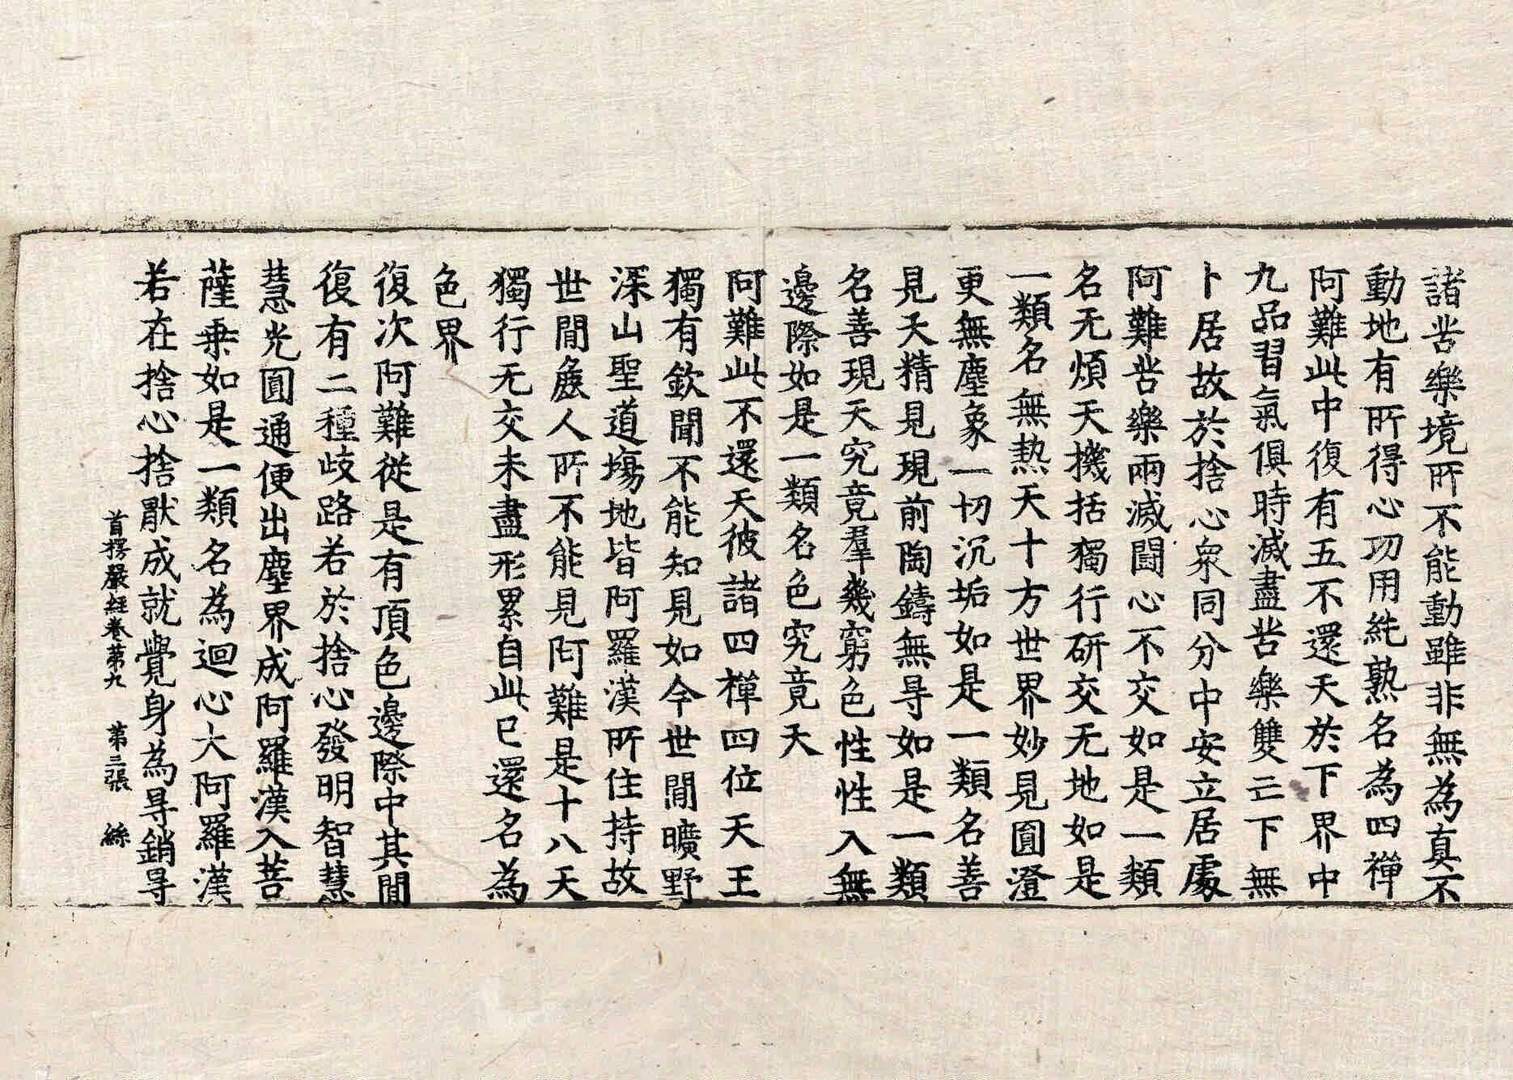 諸苦樂境所不能動雖非無為真不
動地有所得心功用純熟名為四禪
阿難此中復有五不還天於下界中
九品習氣俱時滅盡苦樂雙亡下無
卜居故於捨心衆同分中安立居處
阿難苦樂兩滅鬪心不交如是一類
名无煩天機括獨行研交无地如是
一類名無熱天十方世界妙見圓澄
更無塵象一切沉垢如是一類名善
見天精見現前陶鑄無㝵如是一類
名善現天究竟羣幾窮色性性入無
邊際如是一類名色究竟天
阿難此不還天彼諸四禪四位天王
獨有欽聞不能知見如今世間曠野
深山聖道場地皆阿羅漢所住持故
世間麁人所不能見阿難是十八天
獨行无交未盡形累自此已還名為
色界
復次阿難從是有頂色邊際中其間
復有二種歧路若於捨心發明智慧
慧光圓通便出塵界成阿羅漢入菩
薩乗如是一類名為迴心大阿羅漢
若在捨心捨猒成就覺身為㝵銷㝵
首楞嚴經卷第九 第三張 絲